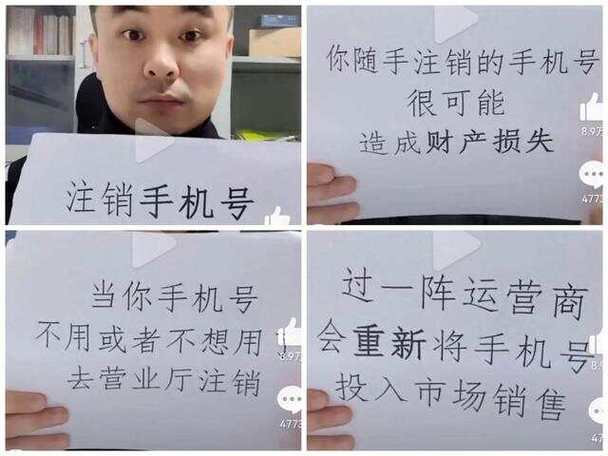 注销手机号
你随手注销的手机号
很可能
造成财产损失
8.9万
4773
当你手机号
不用或者不想用了
去营业厅注销
8.9万
4773
过一阵运营商
会重新将手机号
投入市场销售
8.9
47